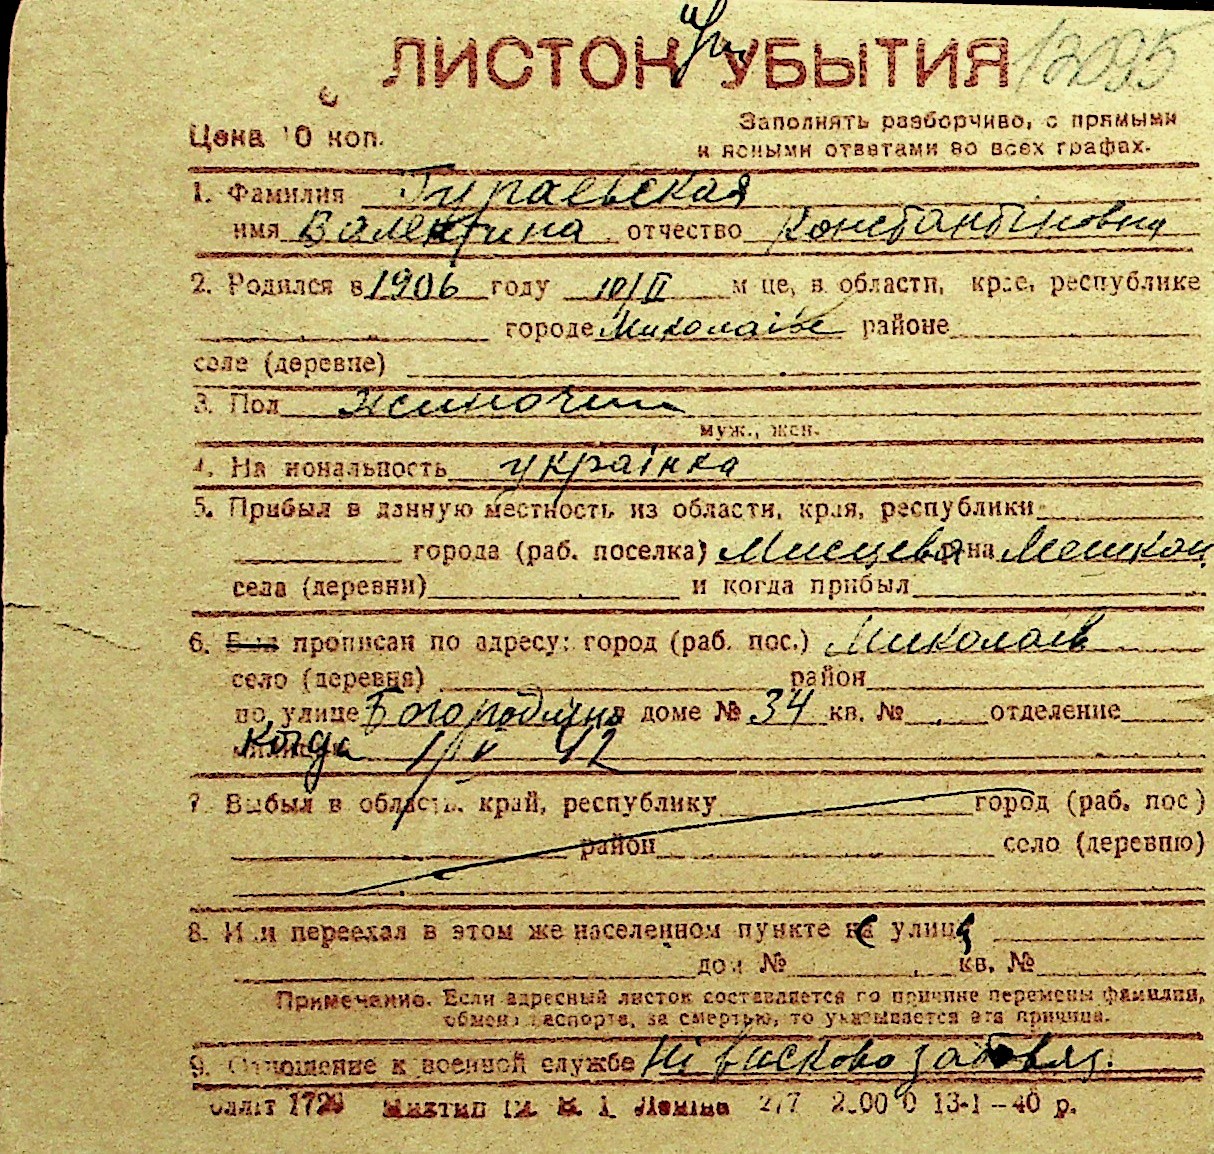 ЛИСТОК УБЫТИЯ 12095
при
Цена 10 коп.
Заполнять разборчиво, с прямыми
и ясными ответами во всех графах.
1. Фамилия Гураевская
имя Валентина отчество Константіновна
2. Родился в 1906 году 10/II м-це, в области, крае, республике
городе Миколаїве районе
селе (деревне)
3. Пол жиночий
муж., жен.
4. Национальность українка
5. Прибыл в данную местность из области, края, республики
города (раб. поселка) Мисцева р-на Мешкан
села (деревни) и когда прибыл
6. Был прописан по адресу: город (раб. пос.) Миколаїв
село (деревня) район
по улице в доме № 34 кв. № отделение
милиции Когда 1/IV 42
7. Выбыл в область, край, республику город (раб. пос)
район село (деревню)
8. Или переехал в этом же населенном пункте на улицу
дом № кв. №
Примечание. Если адресный листок составляется по причине перемены фамилии,
обмена паспорта, за смертью, то указывается эта причина.
9. Отношение к военной службе Ні військовозобовяз.
Оллiт 1729 Миктип ім. В. І. Леніна 277 2.000 0 13-1-40 р.